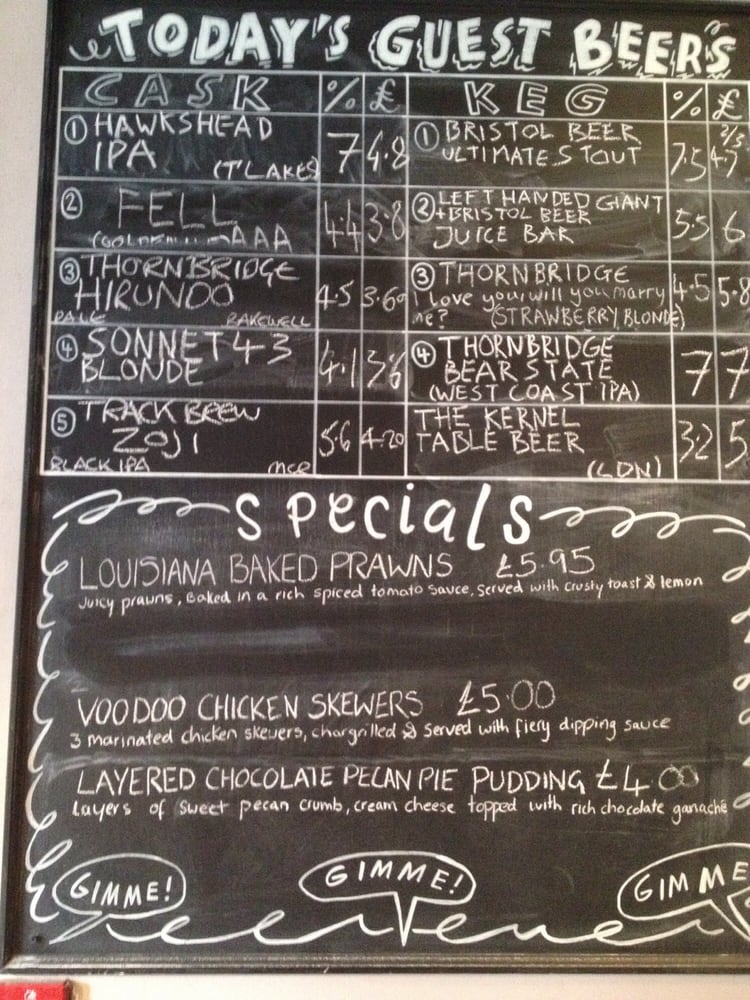 TODAY'S GUEST BEERS
CASK % £
① HAWKSHEAD
IPA (T'LAKES) 7 4.8
② FELL
AAA 4.4 3.8
③ THORNBRIDGE
HIRUNDO 4.5 3.60
PALE BAKEWELL
④ SONNET 43
BLONDE 4.1 3.6
⑤ TRACK BREW
ZOJI 5.6 4.20
BLACK IPA MCR
KEG % £
① BRISTOL BEER 2/3
ULTIMATE STOUT 7.5 4.7
② LEFT HANDED GIANT
+BRISTOL BEER 5.5 6
JUICE BAR
③ THORNBRIDGE 4.5 5.8
I love you will you marry
me? (STRAWBERRY BLONDE)
④ THORNBRIDGE
BEAR STATE 7 7
(WEST COAST IPA)
THE KERNEL
TABLE BEER 3.2 5
(LDN)
Specials
LOUISIANA BAKED PRAWNS £5.95
Juicy prawns, Baked in a rich spiced tomato sauce, served with crusty toast & lemon
VOODOO CHICKEN SKEWERS £5.00
3 marinated chicken skewers, chargrilled & served with fiery dipping sauce
LAYERED CHOCOLATE PECAN PIE PUDDING £4.00
Layers of sweet pecan crumb, cream cheese topped with rich chocolate ganache
GIMME!
GIMME!
GIMME